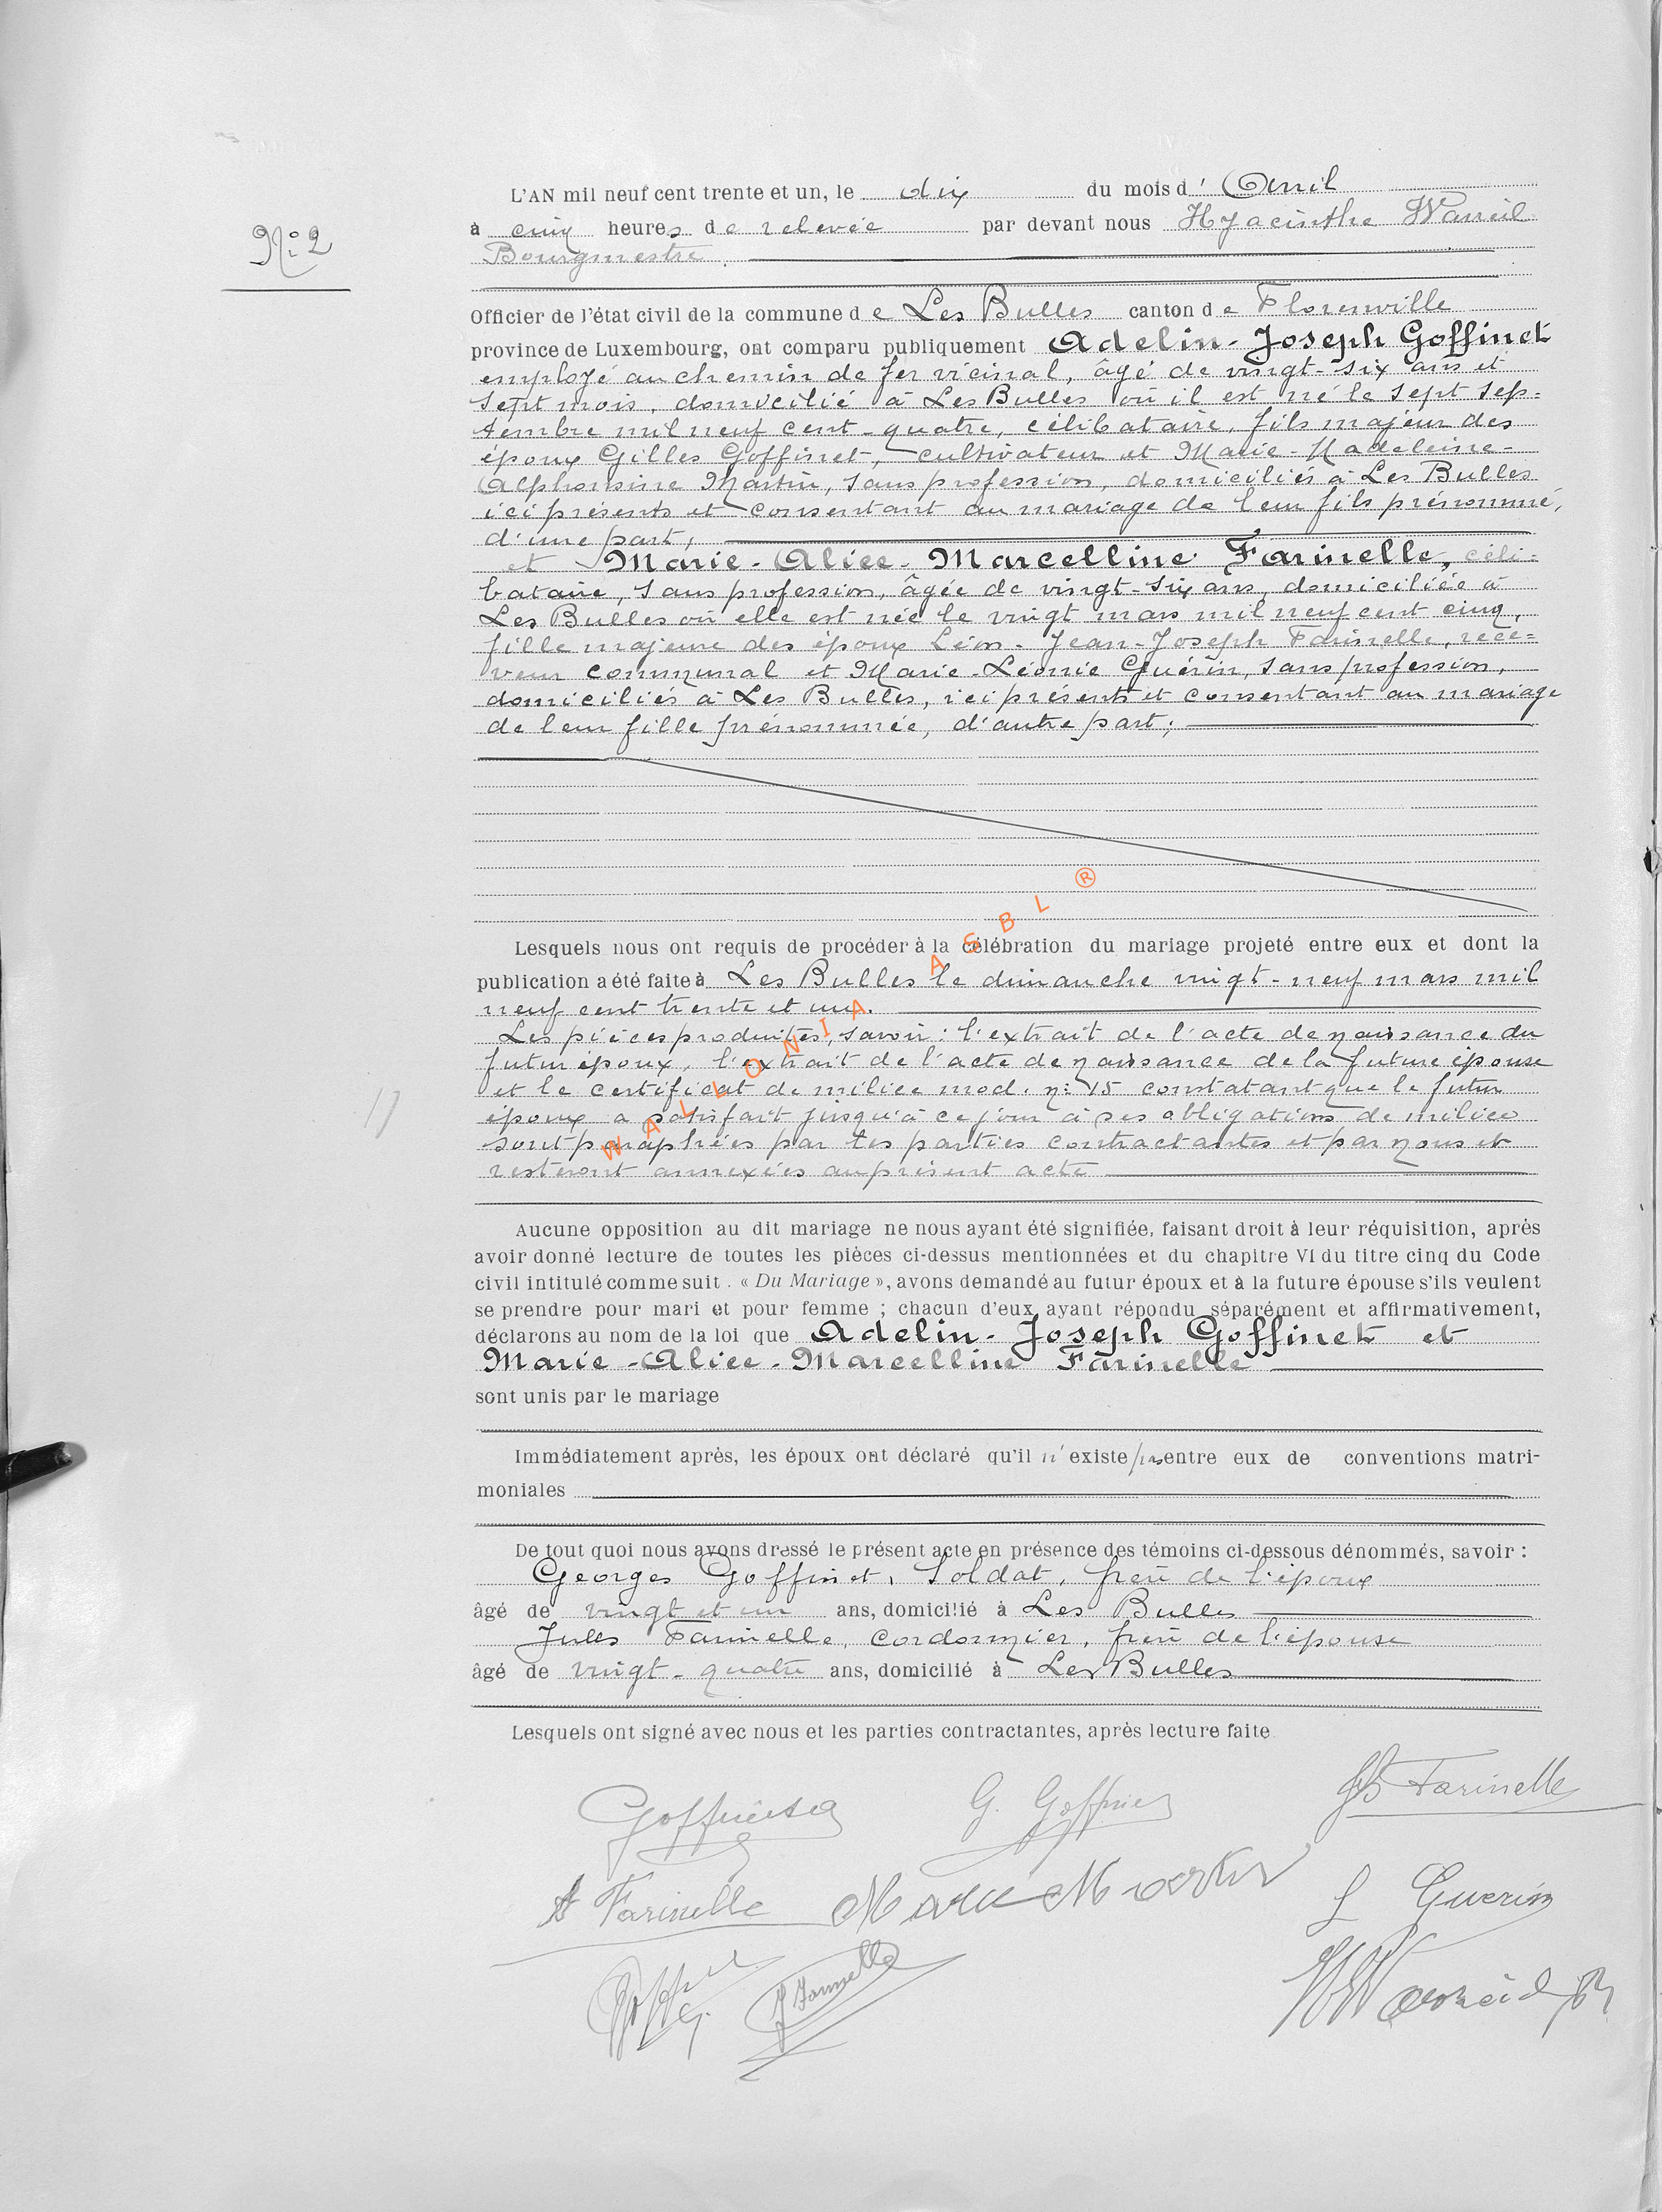 N° 2
L'AN mil neuf cent trente et un, le dix du mois d' Avril
à cinq heures de relevée par devant nous Hyacinthe
Bourgmestre
Officier de l'état civil de la commune de Les Bulles canton de Florenville
province de Luxembourg, ont comparu publiquement Adelin-Joseph Goffinet
employé au chemin de fer vicinal, âgé de vingt-six ans et
sept mois, domicilié à Les Bulles où il est né le sept sep=
tembre mil neuf cent-quatre, célibataire, fils majeur des
époux Gilles Goffinet, cultivateur et Marie-Madeleine-
Alphonsine Martin, sans profession, domiciliés à Les Bulles
ici présents et consentant au mariage de leur fils prénommé,
d'une part,
et Marie-Alice-Marcelline Farinelle, céli=
bataire, sans profession, âgée de vingt-six ans, domiciliée à
Les Bulles où elle est née le vingt mars mil neuf cent cinq,
fille majeure des époux Léon-Jean-Joseph Farinelle, rece=
veur communal et Marie-Léonie Guérin, sans profession,
domiciliés à Les Bulles, ici présents et consentant au mariage
de leur fille prénommée, d'autre part;
Lesquels nous ont requis de procéder à la célébration du mariage projeté entre eux et dont la
publication a été faite à Les Bulles le dimanche vingt-neuf mars mil
neuf cent trente et un.
Les pièces produites, savoir: l'extrait de l'acte de naissance du
futur époux, l'extrait de l'acte de naissance de la future épouse
et le certificat de milice mod. n: 15 constatant que le futur
époux a satisfait jusqu'à ce jour à ses obligations de milice
sont paraphées par les parties contractantes et par nous et
resteront annexées au présent acte
WALLONIA ASBL ®
Aucune opposition au dit mariage ne nous ayant été signifiée, faisant droit à leur réquisition, après
avoir donné lecture de toutes les pièces ci-dessus mentionnées et du chapitre VI du titre cinq du Code
civil intitulé comme suit . « Du Mariage », avons demandé au futur époux et à la future épouse s'ils veulent
se prendre pour mari et pour femme ; chacun d'eux ayant répondu séparément et affirmativement,
déclarons au nom de la loi que Adelin-Joseph Goffinet et
Marie-Alice-Marcelline Farinelle
sont unis par le mariage
Immédiatement après, les époux ont déclaré qu'il n'existe pas entre eux de conventions matri-
moniales
De tout quoi nous avons dressé le présent acte en présence des témoins ci-dessous dénommés, savoir :
Georges Goffinet, soldat, frère de l'époux
âgé de vingt et un ans, domicilié à Les Bulles
Jules Farinelle, cordonnier, frère de l'épouse
âgé de vingt-quatre ans, domicilié à Les Bulles
Lesquels ont signé avec nous et les parties contractantes, après lecture faite
G. Goffinet Farinelle
A Farinelle Marie Martin L Guerin
J Farinelle